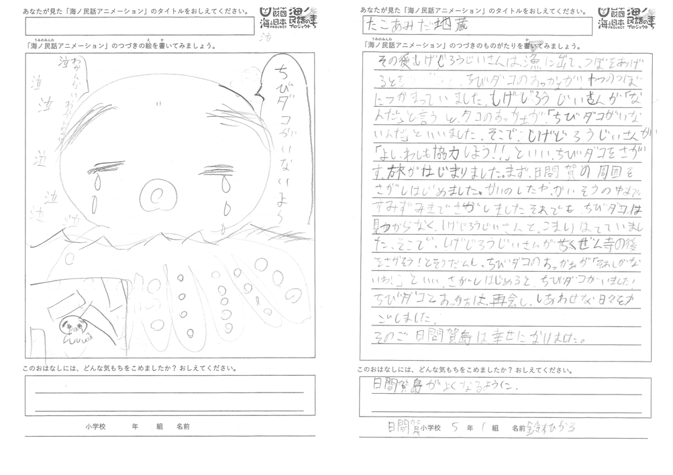 あなたが見た「海ノ民話アニメーション」のタイトルをおしえてください。
海と日本
海ノ民話のまちプロジェクト
「海ノ民話アニメーション」のつづきの絵を書いてみましょう。
ちびダコがいないよう
泣
泣
泣
泣
このおはなしには、どんな気もちをこめましたか？おしえてください。
小学校　年　組　名前
あなたが見た「海ノ民話アニメーション」のタイトルをおしえてください。
海と日本
海ノ民話のまちプロジェクト
たこあみだ地蔵
「海ノ民話アニメーション」のつづきのものがたりを書いてみましょう。
しげじろうじいさんは、漁に出て、つぼをあげ
ると……ちびダコのおっかあが、1つのつぼ
につかまっていました。しげじろうじいさんが「な
んだ」と言うと、タコのおっかあが「ちびダコがいな
いんだ」といいました。そこで、しげじろうじいさんが
「よし、わしも協力しよう！！」といい、ちびダコをさが
す旅がはじまりました。まず、日間賀の周回を
さがしはじめました。かいのしたや、かいそうの中まで
すみずみまでさがしましたそれでも、ちびダコは
見つからなく、しげじろうじいさんと、こまりはてていまし
た。そこで、しげじろうじいさんが
をさがそう！とそうだんし、ちびダコのおっかあが
といい、さがしはじめると、ちびダコがいました！
ちびダコとおっかあは、再会し、しあわせな日々をす
ごしました。
そのご日間賀島は幸せになりました。
このおはなしには、どんな気もちをこめましたか？おしえてください。
日間賀島がよくなるように。
日間賀小学校　5年　1組　名前